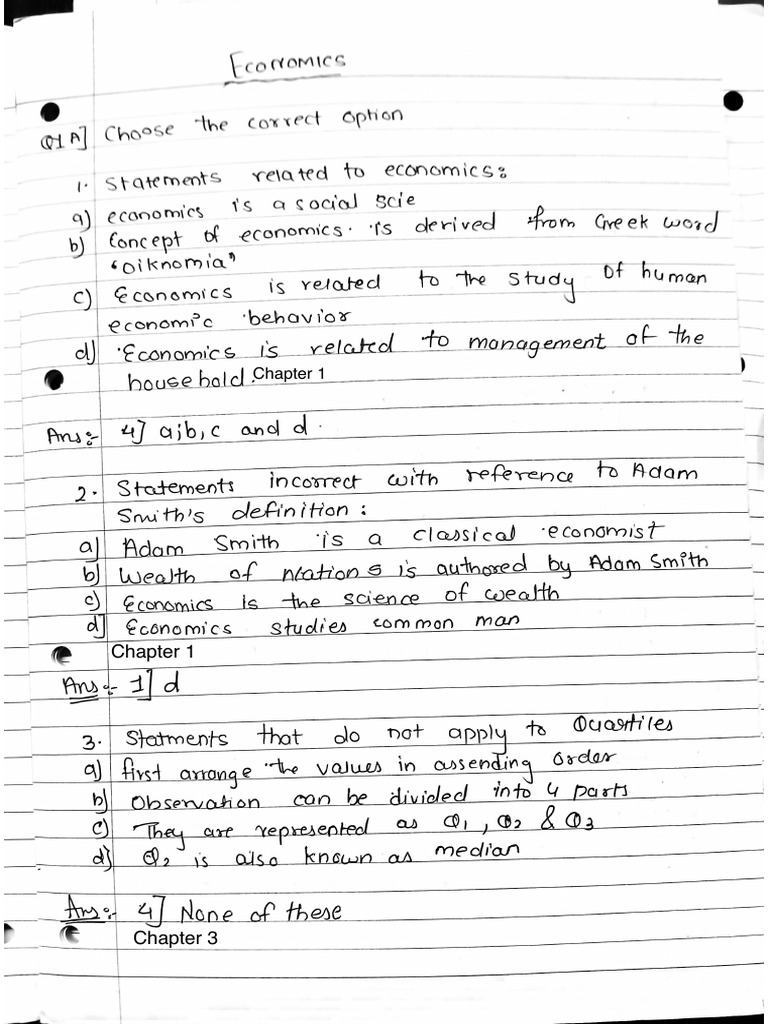 Economics
Q1 A] Choose the correct option
1. Statements related to economics:
a) economics is a social scie
b) Concept of economics is derived from Greek word
"Oiknomia"
c) Economics is related to the study of human
economic behavior
d) Economics is related to management of the
household. Chapter 1
Ans:- 4] a,b, c and d.
2. Statements incorrect with reference to Adam
Smith's definition:
a] Adam Smith is a classical economist
b] Wealth of nations is authored by Adam Smith
c) Economics is the science of wealth
d] Economics studies common man
Chapter 1
Ans:- 1] d
3. Statments that do not apply to Quartiles
a) first arrange the values in assending order
b) Observation can be divided into 4 parts
c) They are represented as Q1, Q2 & Q3
d) Q2 is also known as median
Ans:- 4] None of these
Chapter 3